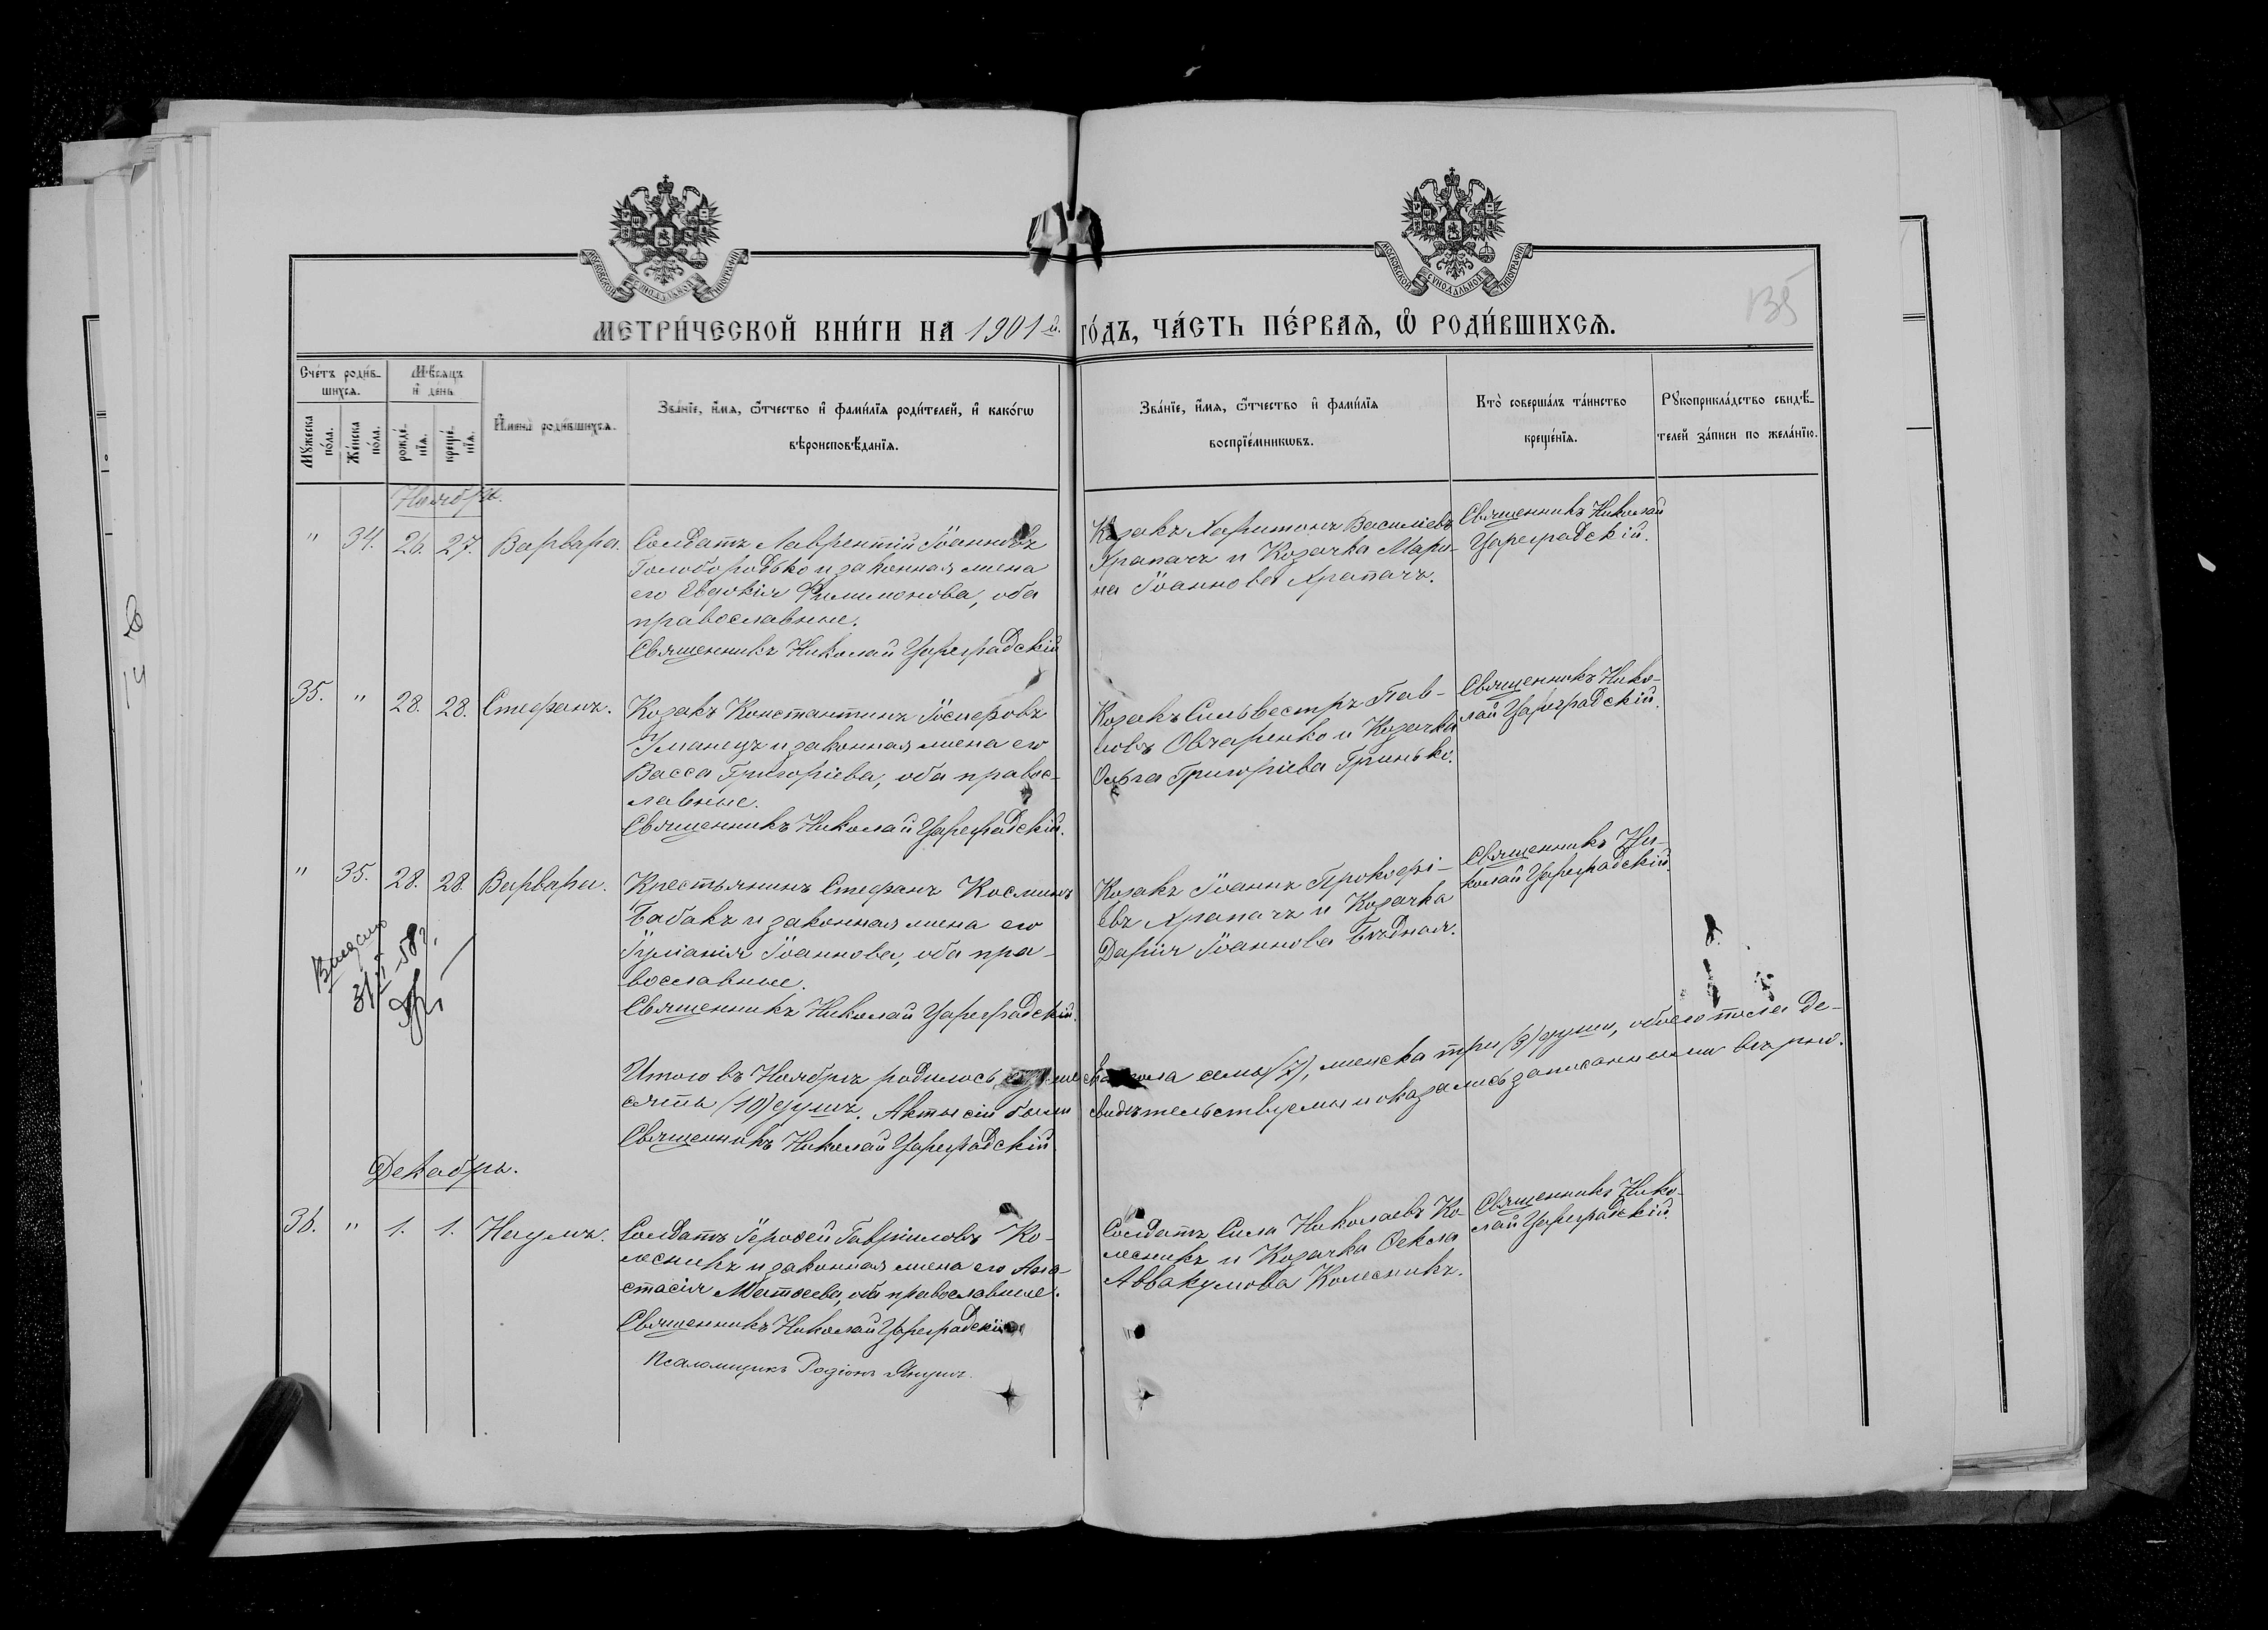 МОСКОВСКОЙ СѴНОДАЛЬНОЙ ТИПОГРАФІИ
МОСКОВСКОЙ СѴНОДАЛЬНОЙ ТИПОГРАФІИ
135
МЕТРИ́ЧЕСКОЙ КНИ́ГИ НА 1901 й. ГО́ДЪ, ЧА́СТЬ ПЕ́РВАѦ, Ѽ РОДИ́ВШИХСѦ.
Сче́тъ роди́в-
шихсѧ.
Мꙋ́жеска
по́ла.
Же́нска
по́ла.
Мѣ́сѧцъ
и҆ де́нь.
рожде́-
нїѧ.
креще́-
нїѧ.
И҆мена̀ роди́вшихсѧ.
Зва́нїе, и҆́мѧ, ѻ҆́тчество и҆ фами́лїѧ роди́телей, и҆ како́гѡ
вѣроисповѣ́данїѧ.
Зва́нїе, и҆́мѧ, ѻ҆́тчество и҆ фами́лїѧ
воспрїе́мникѡвъ.
Кто̀ соверша́лъ та́инство
креще́нїѧ.
Рꙋкоприкла́дство свидѣ́-
телей за́писи по жела́нїю.
Ноябрь.
" 34. 26. 27. Варвара.
Солдатъ Лаврентій Іоанновъ
Голобородько и законная жена
его Евдокія Филимонова, оба
православные.
Священникъ Николай Цареградскій
Козакъ Харитонъ Василіевъ
Храпачъ и Козачка Мари-
на Іоаннова Храпачъ.
Священникъ Николай
Цареградскій.
35. " 28. 28. Стефанъ.
Козакъ Константинъ Іосифовъ
Уманецъ и законная жена его
Васса Григоріева, оба правос-
лавные.
Священникъ Николай Цареградскій.
Козакъ Сильвестръ Пав-
ловъ Овчаренко и Козачка
Ольга Григоріева Гринько.
Священникъ Нико-
лай Цареградскій.
" 35. 28. 28. Варвара.
Крестьянинъ Стефанъ Косминъ
Бабакъ и законная жена его
Іуліанія Іоаннова, оба пра-
вославные.
Священникъ Николай Цареградскій.
Козакъ Іоаннъ Прокофі-
евъ Храпачъ и Козачка
Дарія Іоаннова Бѣдная.
Священникъ Ни-
колай Цареградскій.
31/ 58г.
Итого въ Ноябрѣ родилось мужеска пола семь (7), женска три (3) души, обоего пола де-
сять (10) душъ. Акты сіи были свидѣтельствуемы и оказались записанными вѣрно.
Священникъ Николай Цареградскій.
Декабрь.
36. " 1. 1. Наумъ.
Солдатъ Іероѳей Гавріиловъ Ко-
лесникъ и законная жена его Ана-
стасія Матѳеева, оба православные.
Священникъ Николай Цареградскій
Псаломщикъ Родіонъ
Солдатъ Сила Николаевъ Ко-
лесникъ и Козачка Ѳекла
Аввакумова Колесникъ.
Священникъ Нико-
лай Цареградскій.